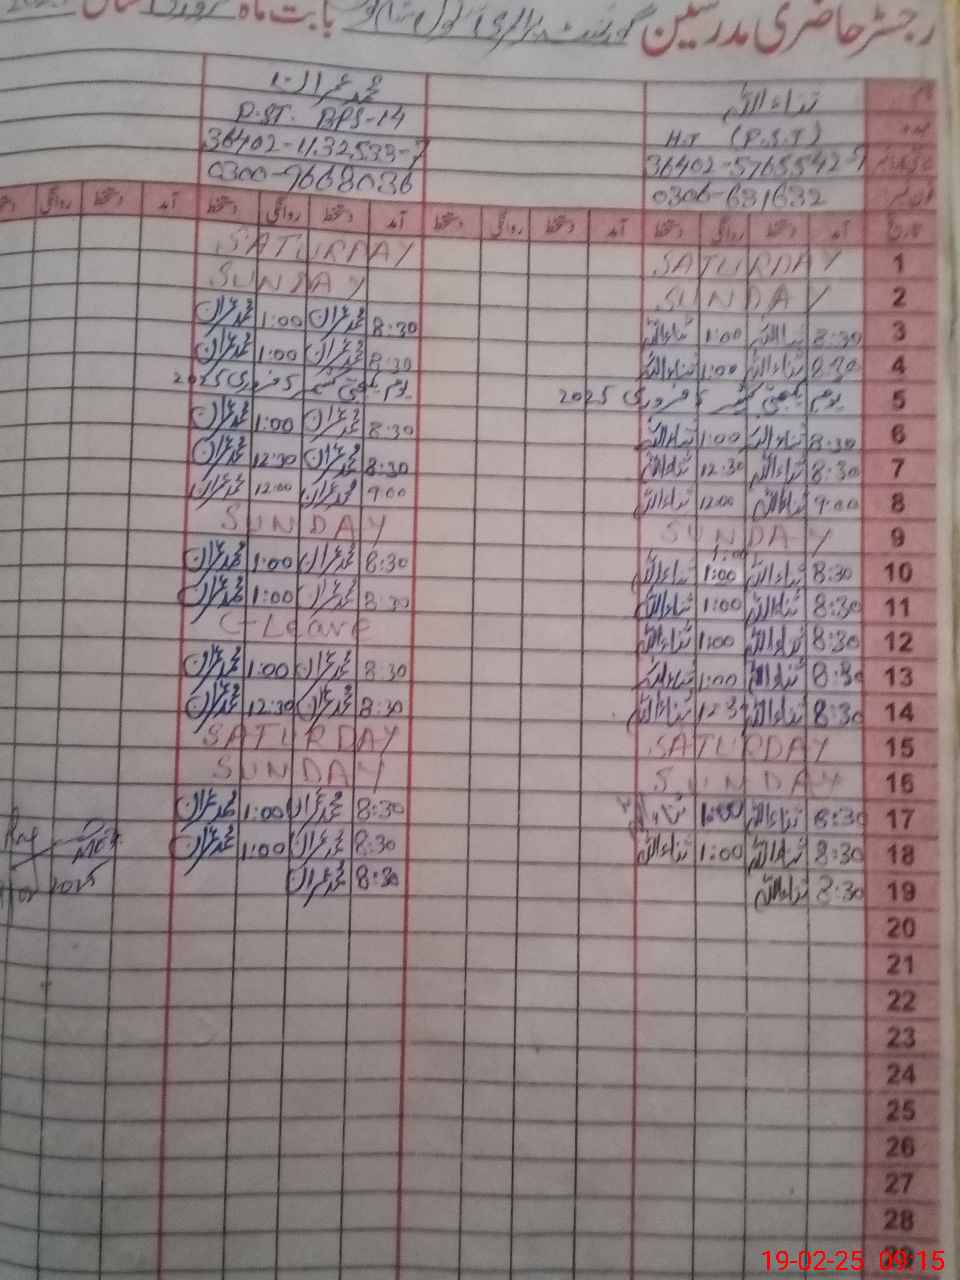 رجسٹر حاضری مدرسین گورنمنٹ پرائمری سکول بابت ماہ فروری
ثناء اللہ محمد عمران
H.T (P.S.T) P.ST. BPS-14
36402-5765542-7 36402-1132533-7
0306-631632 0300-7668036
تاریخ آمد دستخط روانگی دستخط آمد دستخط روانگی دستخط آمد دستخط روانگی دستخط آمد دستخط روانگی
1 SATURDAY SATURDAY
2 SUNDAY SUNDAY
3 8:30 ثناء اللہ 1:00 ثناء اللہ 8:30 محمد عمران 1:00 محمد عمران
4 8:30 ثناء اللہ 1:00 ثناء اللہ 8:30 محمد عمران 1:00 محمد عمران
5 یوم یکجہتی کشمیر 5 فروری 2025 یوم یکجہتی کشمیر 5 فروری 2025
6 8:30 ثناء اللہ 1:00 ثناء اللہ 8:30 محمد عمران 1:00 محمد عمران
7 8:30 ثناء اللہ 12:30 ثناء اللہ 8:30 محمد عمران 12:30 محمد عمران
8 9:00 ثناء اللہ 12:00 ثناء اللہ 9:00 محمد عمران 12:00 محمد عمران
9 SUNDAY SUNDAY
10 8:30 ثناء اللہ 1:00 ثناء اللہ 8:30 محمد عمران 1:00 محمد عمران
11 8:30 ثناء اللہ 1:00 ثناء اللہ 8:30 محمد عمران 1:00 محمد عمران
12 8:30 ثناء اللہ 1:00 ثناء اللہ C-Leave
13 8:30 ثناء اللہ 1:00 ثناء اللہ 8:30 محمد عمران 1:00 محمد عمران
14 8:30 ثناء اللہ 12:3 ثناء اللہ 8:30 محمد عمران 12:30 محمد عمران
15 SATURDAY SATURDAY
16 SUNDAY SUNDAY
17 8:30 ثناء اللہ 1:00 ثناء اللہ 8:30 محمد عمران 1:00 محمد عمران
18 8:30 ثناء اللہ 1:00 ثناء اللہ 8:30 محمد عمران 1:00 محمد عمران
19 8:30 ثناء اللہ 8:30 محمد عمران
20
21
22
23
24
25
26
27
28
29
19-02-25 09:15